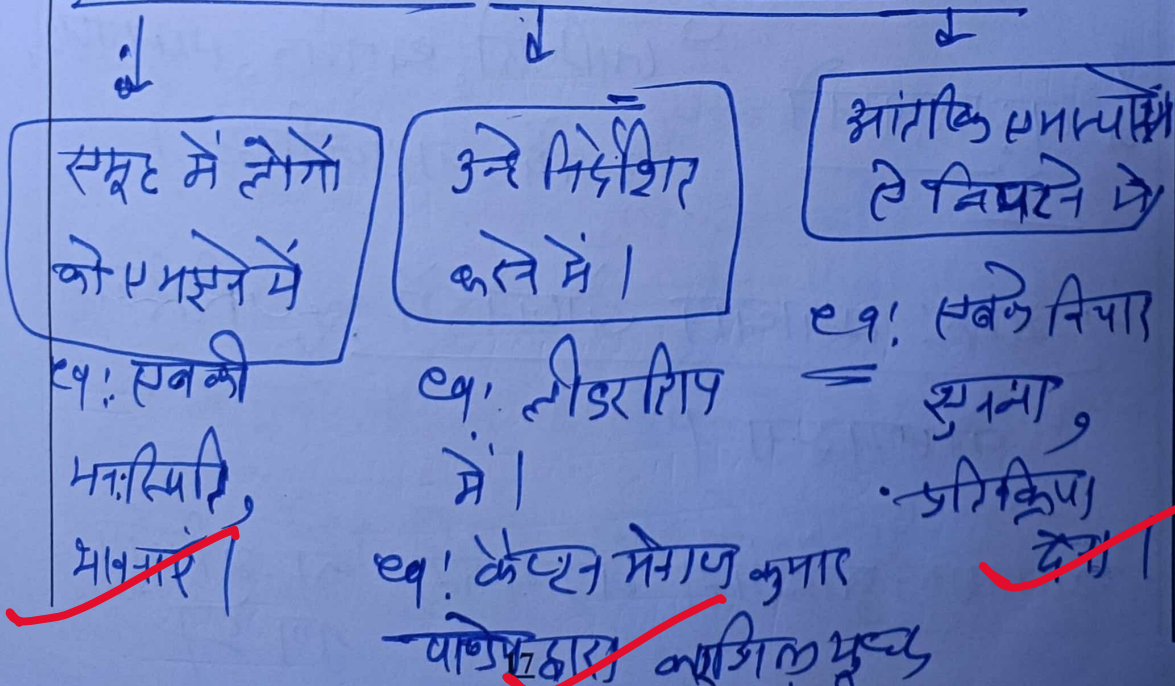 समूह में लोगों
को समझने में
eg: सबकी
मनःस्थिति,
भावनाएं।
उन्हे निर्देशित
करने में।
eg: लीडरशिप
में।
eg! कैप्टन मनोज कुमार
पाण्डेय द्वारा कारगिल युध्द
आंतरिक समस्याओं
से निपटने में
eg! सबके विचार
सुनना,
प्रतिक्रिया
देना।